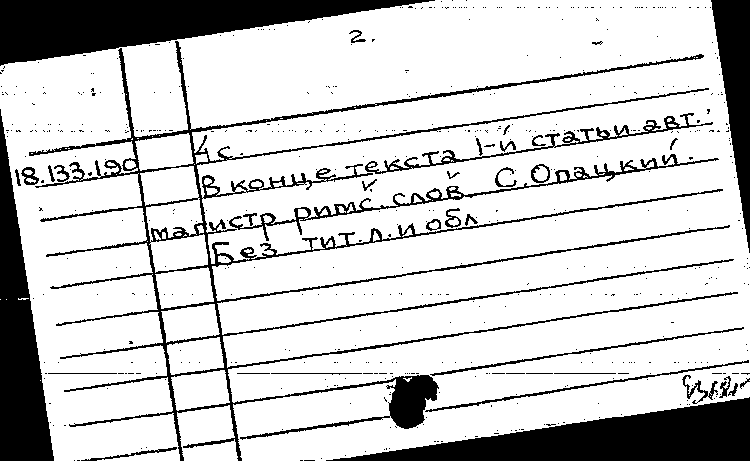 2.
4 с.
18.133.190
В конце текста 1-й статьи авт.:
магистр римс. слов. С. Опацкий.
Без тит. л. и обл